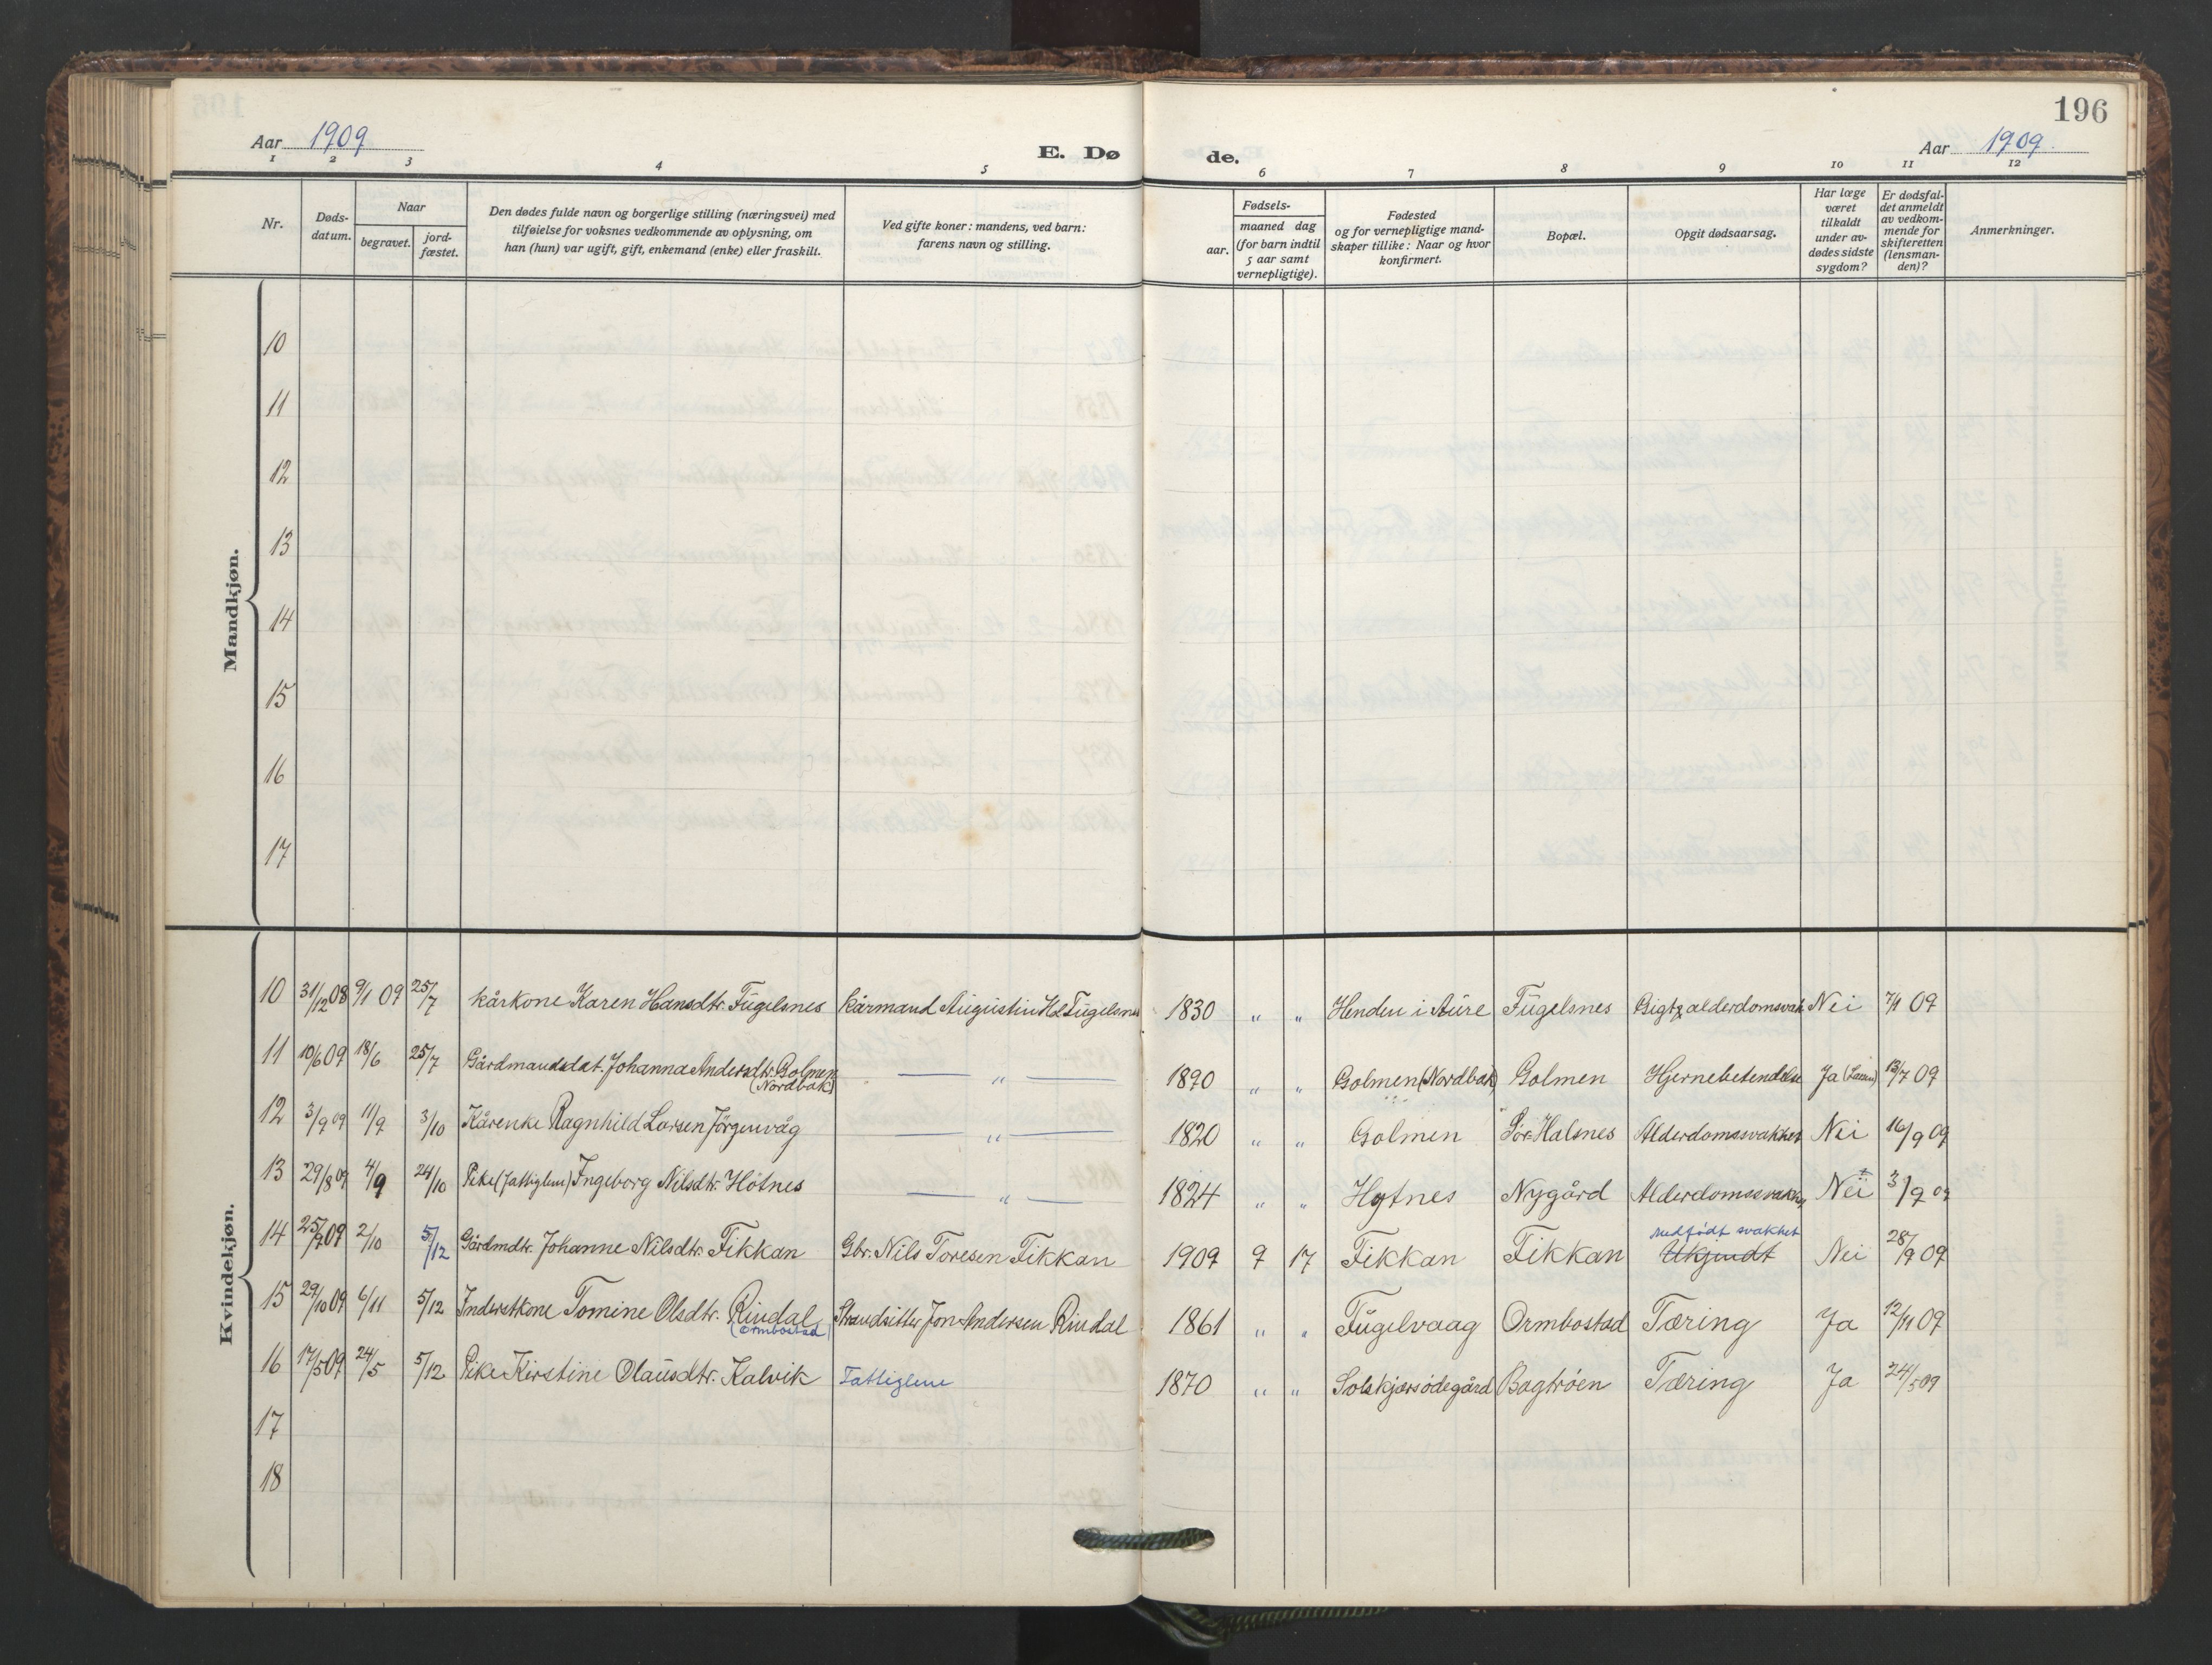 196
Aar 1909
E. Dø
de.
Aar 1909.
1 2 3 4 5 6 7 8 9 10 11 12
Nr.
Døds-
datum.
Naar
begravet.
jord-
fæstet.
Den dødes fulde navn og borgerlige stilling (næringsvei) med
tilføielse for voksnes vedkommende av oplysning, om
han (hun) var ugift, gift, enkemand (enke) eller fraskilt.
Ved gifte koner: mandens, ved barn:
farens navn og stilling.
Fødsels-
aar.
maaned dag
(for barn indtil
5 aar samt
vernepligtige).
Fødested
og for vernepligtige mand-
skaper tillike: Naar og hvor
konfirmert.
Bopæl.
Opgit dødsaarsag.
Har læge
været
tilkaldt
under av-
dødes sidste
sygdom?
Er dødsfal-
det anmeldt
av vedkom-
mende for
skifteretten
(lensman-
den)?
Anmerkninger.
Mandkjøn.
10
11
12
13
14
15
16
17
Kvindekjøn.
10 31/12 08 9/1 09 25/7 Kårkone Karen Hansdtr. Fügelsnes Kårmand Augustin Fügelsnes 1830 " " Henden i Aure Fügelsnes Gigt & alderdomsvak Nei 7/1 09
11 10/6 09 18/6 25/7 Gårdmandsdat. Johanna Andersdtr. Golmen — " — 1890 " " Golmen (Nordbak) Golmen Hjernebetendelse Ja 13/7 09
(Nordbak)
12 3/9 09 11/9 3/10 Kårenke Ragnhild Larsen Jörgenvåg — " — 1820 " " Golmen Sör-Halsnes Alderdomssvakhet Nei 16/9 09
13 29/8 09 4/9 24/10 Pike (Fattiglem) Ingeborg Nilsdtr. Hötnes — " — 1824 " " Hytnes Nygård Alderdomssvakhet Nei 3/9 09
medfödt svakhet
14 25/9 09 2/10 5/12 Gårdmdtr. Johanne Nilsdtr. Fikkan Gbr. Nils Toresen Fikkan 1909 9 17 Fikkan Fikkan Ukjendt Nei 28/9 09
15 29/10 09 6/11 5/12 Inderstkone Tomine Olsdtr. Rindal Strandsitter Jon Andersen Rindal 1861 " " Fügelvaag Ormbostad Tæring Ja 12/11 09
(Ormbostad)
16 17/5 09 24/5 5/12 Pike Kirstine Olausdtr. Kalvik Fattiglem 1870 " " Solskjærsödegård Bagtröen Tæring Ja 24/5 09
17
18